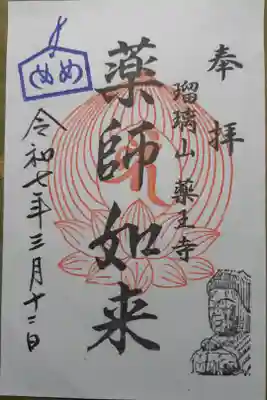 奉拝
瑠璃山 薬王寺
薬師如来
令和七年三月十二日
めめ